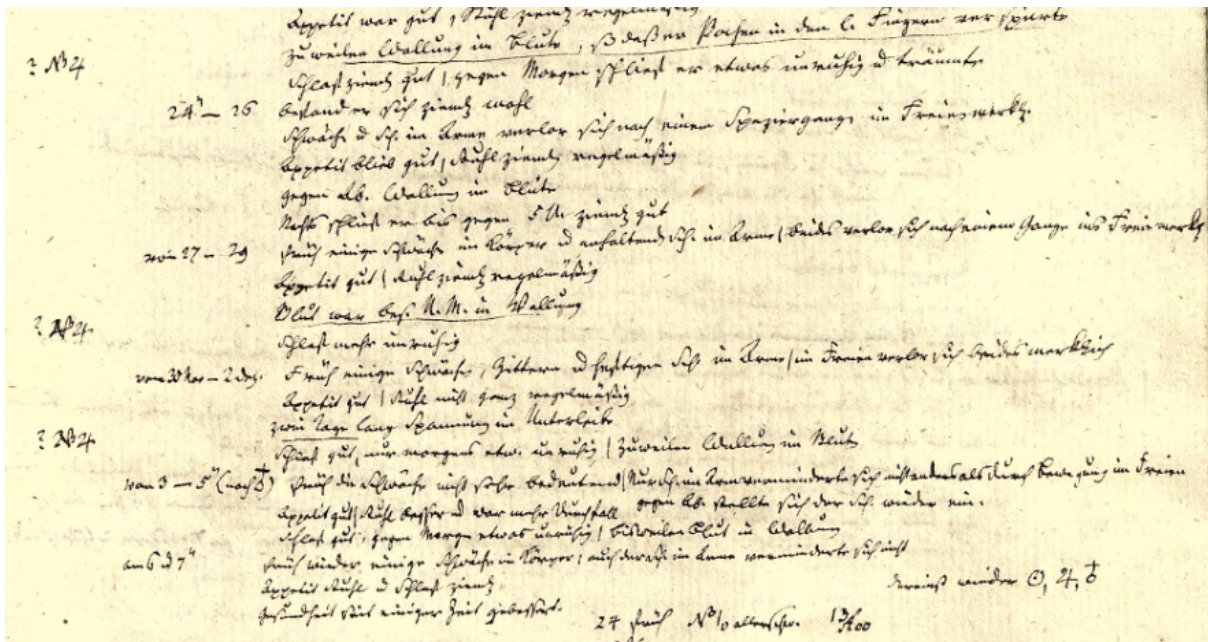 Appetit war gut, Stuhl ziemł regelmäßig
zuweilen Wallung im Blute, so daß er Pochen in den l. Fingern verspürte
? № 4
Schlaf ziemł gut, gegen Morgen schlief er etwas unruhig u träumte
24 – 26. befand er sich ziemł wohl
Schwäche u Sch. im Arme verlor sich nach einem Spaziergange im Freien merkł.
Appetit blieb gut, Stuhl ziemł regelmäßig
gegen Ab. Wallung im Blute
Nachts schlief er bis gegen 5 U. ziemł gut
von 27 – 29 früh einige Schwäche im Körper u anhaltend Sch. im Arme, beides verlor sich nach einem Gange ins Freie merkł
Appetit gut, Stuhl ziemł regelmäßig
Blut war bes. N.M. in Wallung
? № 4.
Schlaf mehr unruhig
vom 30 Nov – 2 Dez. Früh einige Schwäche, Zittern u heftigen Sch im Arme, im Freien verlor sich beides merklich
Appetit gut, Stuhl nicht ganz regelmäßig
zwei Tage lang Spannung im Unterleibe
? № 4
Schlief gut, nur morgens etw. unruhig, zuweilen Wallung im Blut
von 3 – 5 (nach ♁) früh die Schwäche nicht sehr bedeutend, Nur Sch. im Arm verminderte sich nicht anders als durch Bewegung im Freien
gegen Ab. stellte sich der Sch. wieder ein.
Appetit gut, Stuhl besser u war mehr Durchfall
Schlaf gut, gegen Morgen etwas unruhig, bisweilen Blut in Wallung
am 6 u 7 früh wieder einige Schwäche im Körper, auch der Sch. im Arme verminderte sich nicht
Appetit Stuhl u Schlaf ziemł.
wieder ☉, ♃, ♁
Gesundheit seit einiger Zeit gebessert.
24 früh №